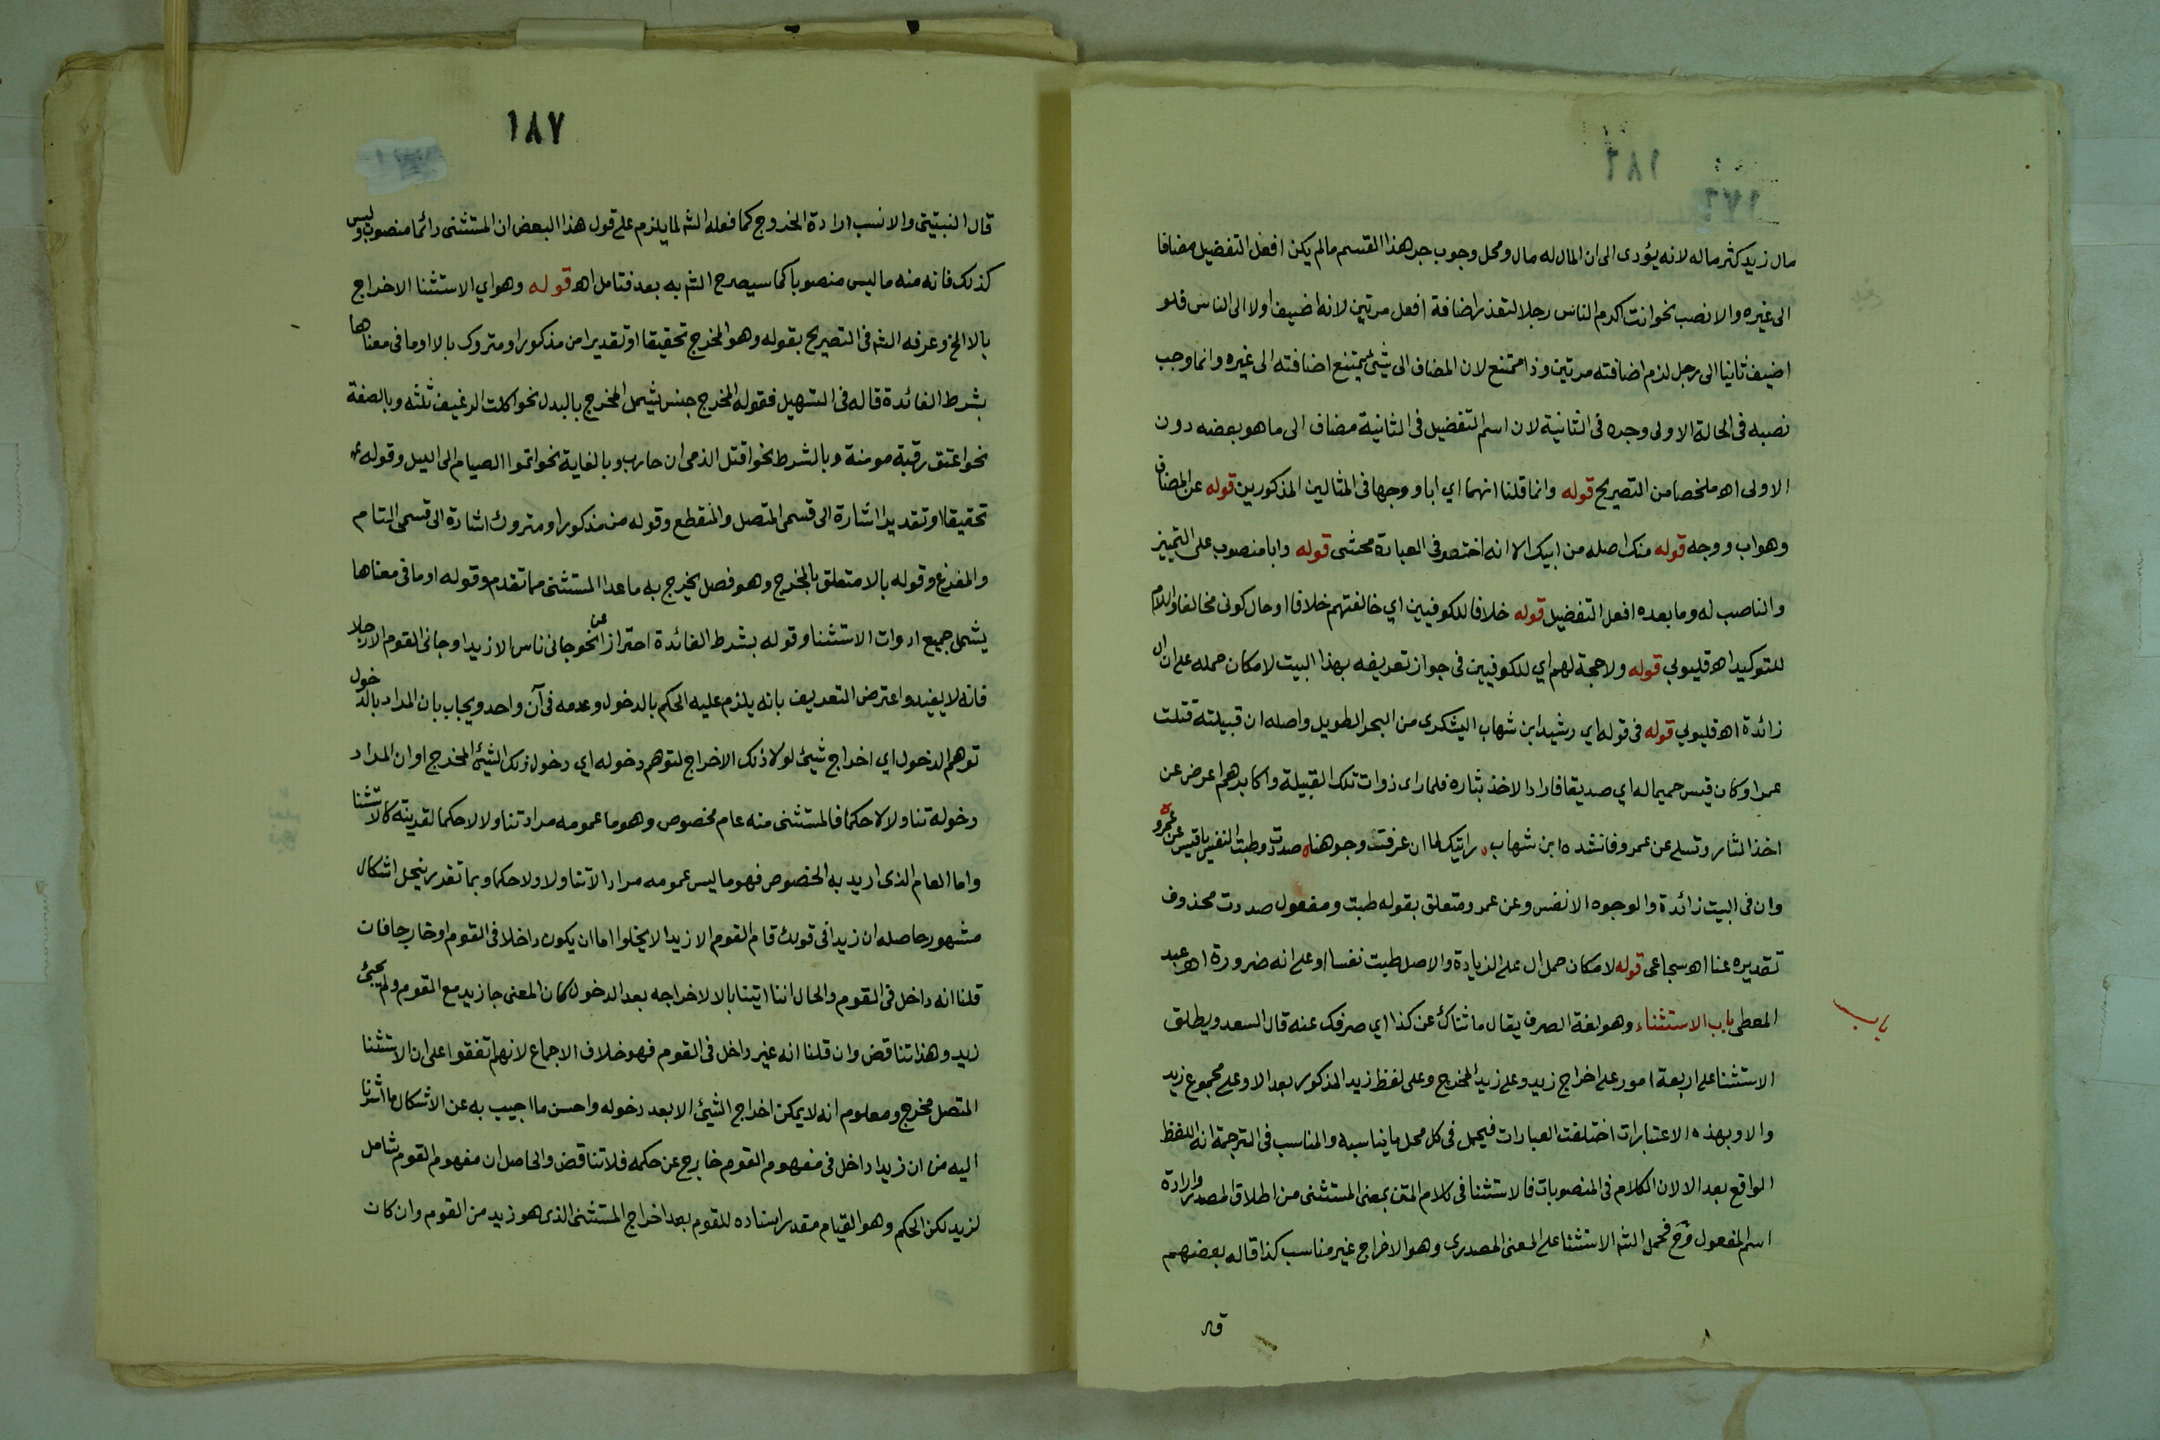 مال زيد كثر ماله لانه يؤدى الى ان المال له مال ومحل وجوب جر هذا القسم مالم يكن افعل التفضيل مضافا
الى غيره والا نصب نحو انت اكرم الناس رجلا لتعذر اضافة افعل مرتين لانه اضيف اولا الى الناس فلو
اضيف ثانيا الى رجل لزم اضافته مرتين وذا ممتنع لان المضاف الى شئ يمتنع اضافته الى غيره وانما وجب
نصبه فى الحالة الاولى وجره فى الثانية لان اسم التفضيل فى الثانية مضاف الى ما هو بعضه دون
الاولى اه ملخصا من التصريح قوله وانما قلنا انهما اي ابا ووجها فى المثالين المذكورين قوله عن المضاف
وهو اب ووجه قوله منك اصله من ابيك الا انه اختصر فى العبارة محشى قوله وابا منصوب على التمييز
والناصب له وما بعده افعل التفضيل قوله خلافا للكوفيين اي خالفتهم خلافا او حال كونى مخالفا واللام
للتوكيد اه قليوبي قوله ولا حجة لهم اي للكوفيين فى جواز تعريفه بهذا البيت لامكان حمله على ان ال
زائدة اه قليوبي قوله فى قوله اي رشيد ابن شهاب اليشكرى من البحر الطويل واصله ان قبيلته قتلت
عمرا وكان قيس حميما له اي صديقا فاراد الاخذ بثاره فلما راى ذوات تلك القبيلة واكابرهم اعرض عن
اخذ الثار وتسلى عن عمرو فانشده ابن شهاب رايتك لما ان عرفت وجوهنا صددت وطبت النفس يا قيس عن عمرو
وان فى البيت زائدة والوجوه الانفس وعن عمرو متعلق بقوله طبت ومفعول صددت محذوف
تقديره عنا اه سجاعى قوله لامكان حمل ال على الزيادة والاصل طبت نفسا او على انه ضرورة اه عبد
المعطى باب الاستثناء وهو لغة الصرف يقال ما ثناك عن كذا اي صرفك عنه قال السعد ويطلق
باب
الاستثنا على اربعة امور على اخراج زيد وعلى زيد المخرج وعلى لفظ زيد المذكور بعد الا وعلى مجموع زيد
والا وبهذه الاعتبارات اختلفت العبارات فيحمل فى كل محل ما يناسبه والمناسب فى الترجمة انه اللفظ
الواقع بعد الا لان الكلام فى المنصوبات فالاستثنا فى كلام المتن بمعنى المستثنى من اطلاق المصدر وارادة
اسم المفعول وح فحمل الش الاستثنا على المعنى المصدرى وهو الاخراج غير مناسب كذا قاله بعضهم
قال
١٨٧
قال النبتيتى والانسب ارادة الخروج كما فعله الش لما يلزم على قول هذا البعض ان المستثنى دائما منصوب وليس
كذلك فانه منه ما ليس منصوبا كما سيصرح الش به بعد فتامل اه قوله وهو اي الاستثنا الاخراج
بالا الخ وعرفه الش فى التصريح بقوله وهو المخرج تحقيقا او تقديرا من مذكور او متروك بالا او ما فى معناها
بشرط الفائدة قاله فى التسهيل فقوله المخرج جنس يشمل المخرج بالبدل نحو اكلت الرغيف ثلثه وبالصفة
نحو اعتق رقبة مومنة وبالشرط نحو اقتل الذمى ان حارب وبالغاية نحو اتموا الصيام الى اليل وقوله
تحقيقا او تقديرا اشارة الى قسمى المتصل والمنقطع وقوله من مذكور او متروك اشارة الى قسمى التام
والمفرغ وقوله بالا متعلق بالمخرج وهو فصل يخرج به ما عدا المستثنى مما تقدم وقوله او ما فى معناها
يشمل جميع ادوات الاستثنا وقوله بشرط الفائدة احترازا عن نحو جانى ناس الا زيدا وجانى القوم الا رجلا
فانه لا يفيد واعترض التعريف بانه يلزم عليه الحكم بالدخول وعدمه فى آن واحد ويجاب بان المراد بالدخول
توهم الدخول اي اخراج شيئ لولا ذلك الاخراج لتوهم دخوله اي دخول ذلك الشيئ المخرج او ان المراد
دخوله تناولا لا حكما فالمستثنى منه عام مخصوص وهو ما عمومه مراد تناولا لا حكما لقرينة كالاستثنا
واما العام الذى اريد به الخصوص فهو ما ليس عمومه مرادا لا تناولا ولا حكما وبما تقرر ينحل اشكال
مشهور حاصله ان زيدا فى قولك قام القوم الا زيدا لا يخلوا اما ان يكون داخلا فى القوم او خارجا فان
قلنا انه داخل فى القوم والحال اننا اتينا بالا لاخراجه بعد الدخول كان المعنى جا زيد مع القوم ولم يجئ
زيد وهذا تناقض وان قلنا انه غير داخل فى القوم فهو خلاف الاجماع لانهم اتفقوا على ان الاستثنا
المتصل مخرج ومعلوم انه لا يمكن اخراج الشيئ الا بعد دخوله واحسن ما اجيب به عن الاشكال ما اشرنا
اليه من ان زيدا داخل فى مفهوم القوم خارج عن حكمه فلا تناقض والحاصل ان مفهوم القوم شامل
لزيد لكن الحكم وهو القيام مقدر اسناده للقوم بعد اخراج المستثنى الذى هو زيد من القوم وان كان